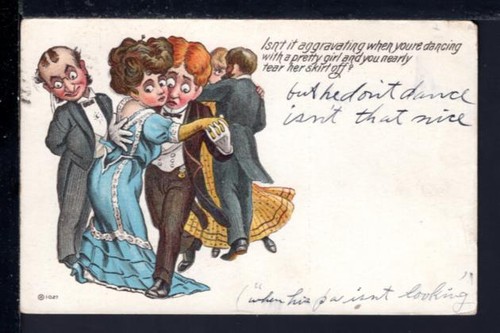 Isn't it aggravating when youre dancing
with a pretty girl and you nearly
tear her skirt off?
but he don't dance
isn't that nice
("when his pa isn't looking")
© 1027